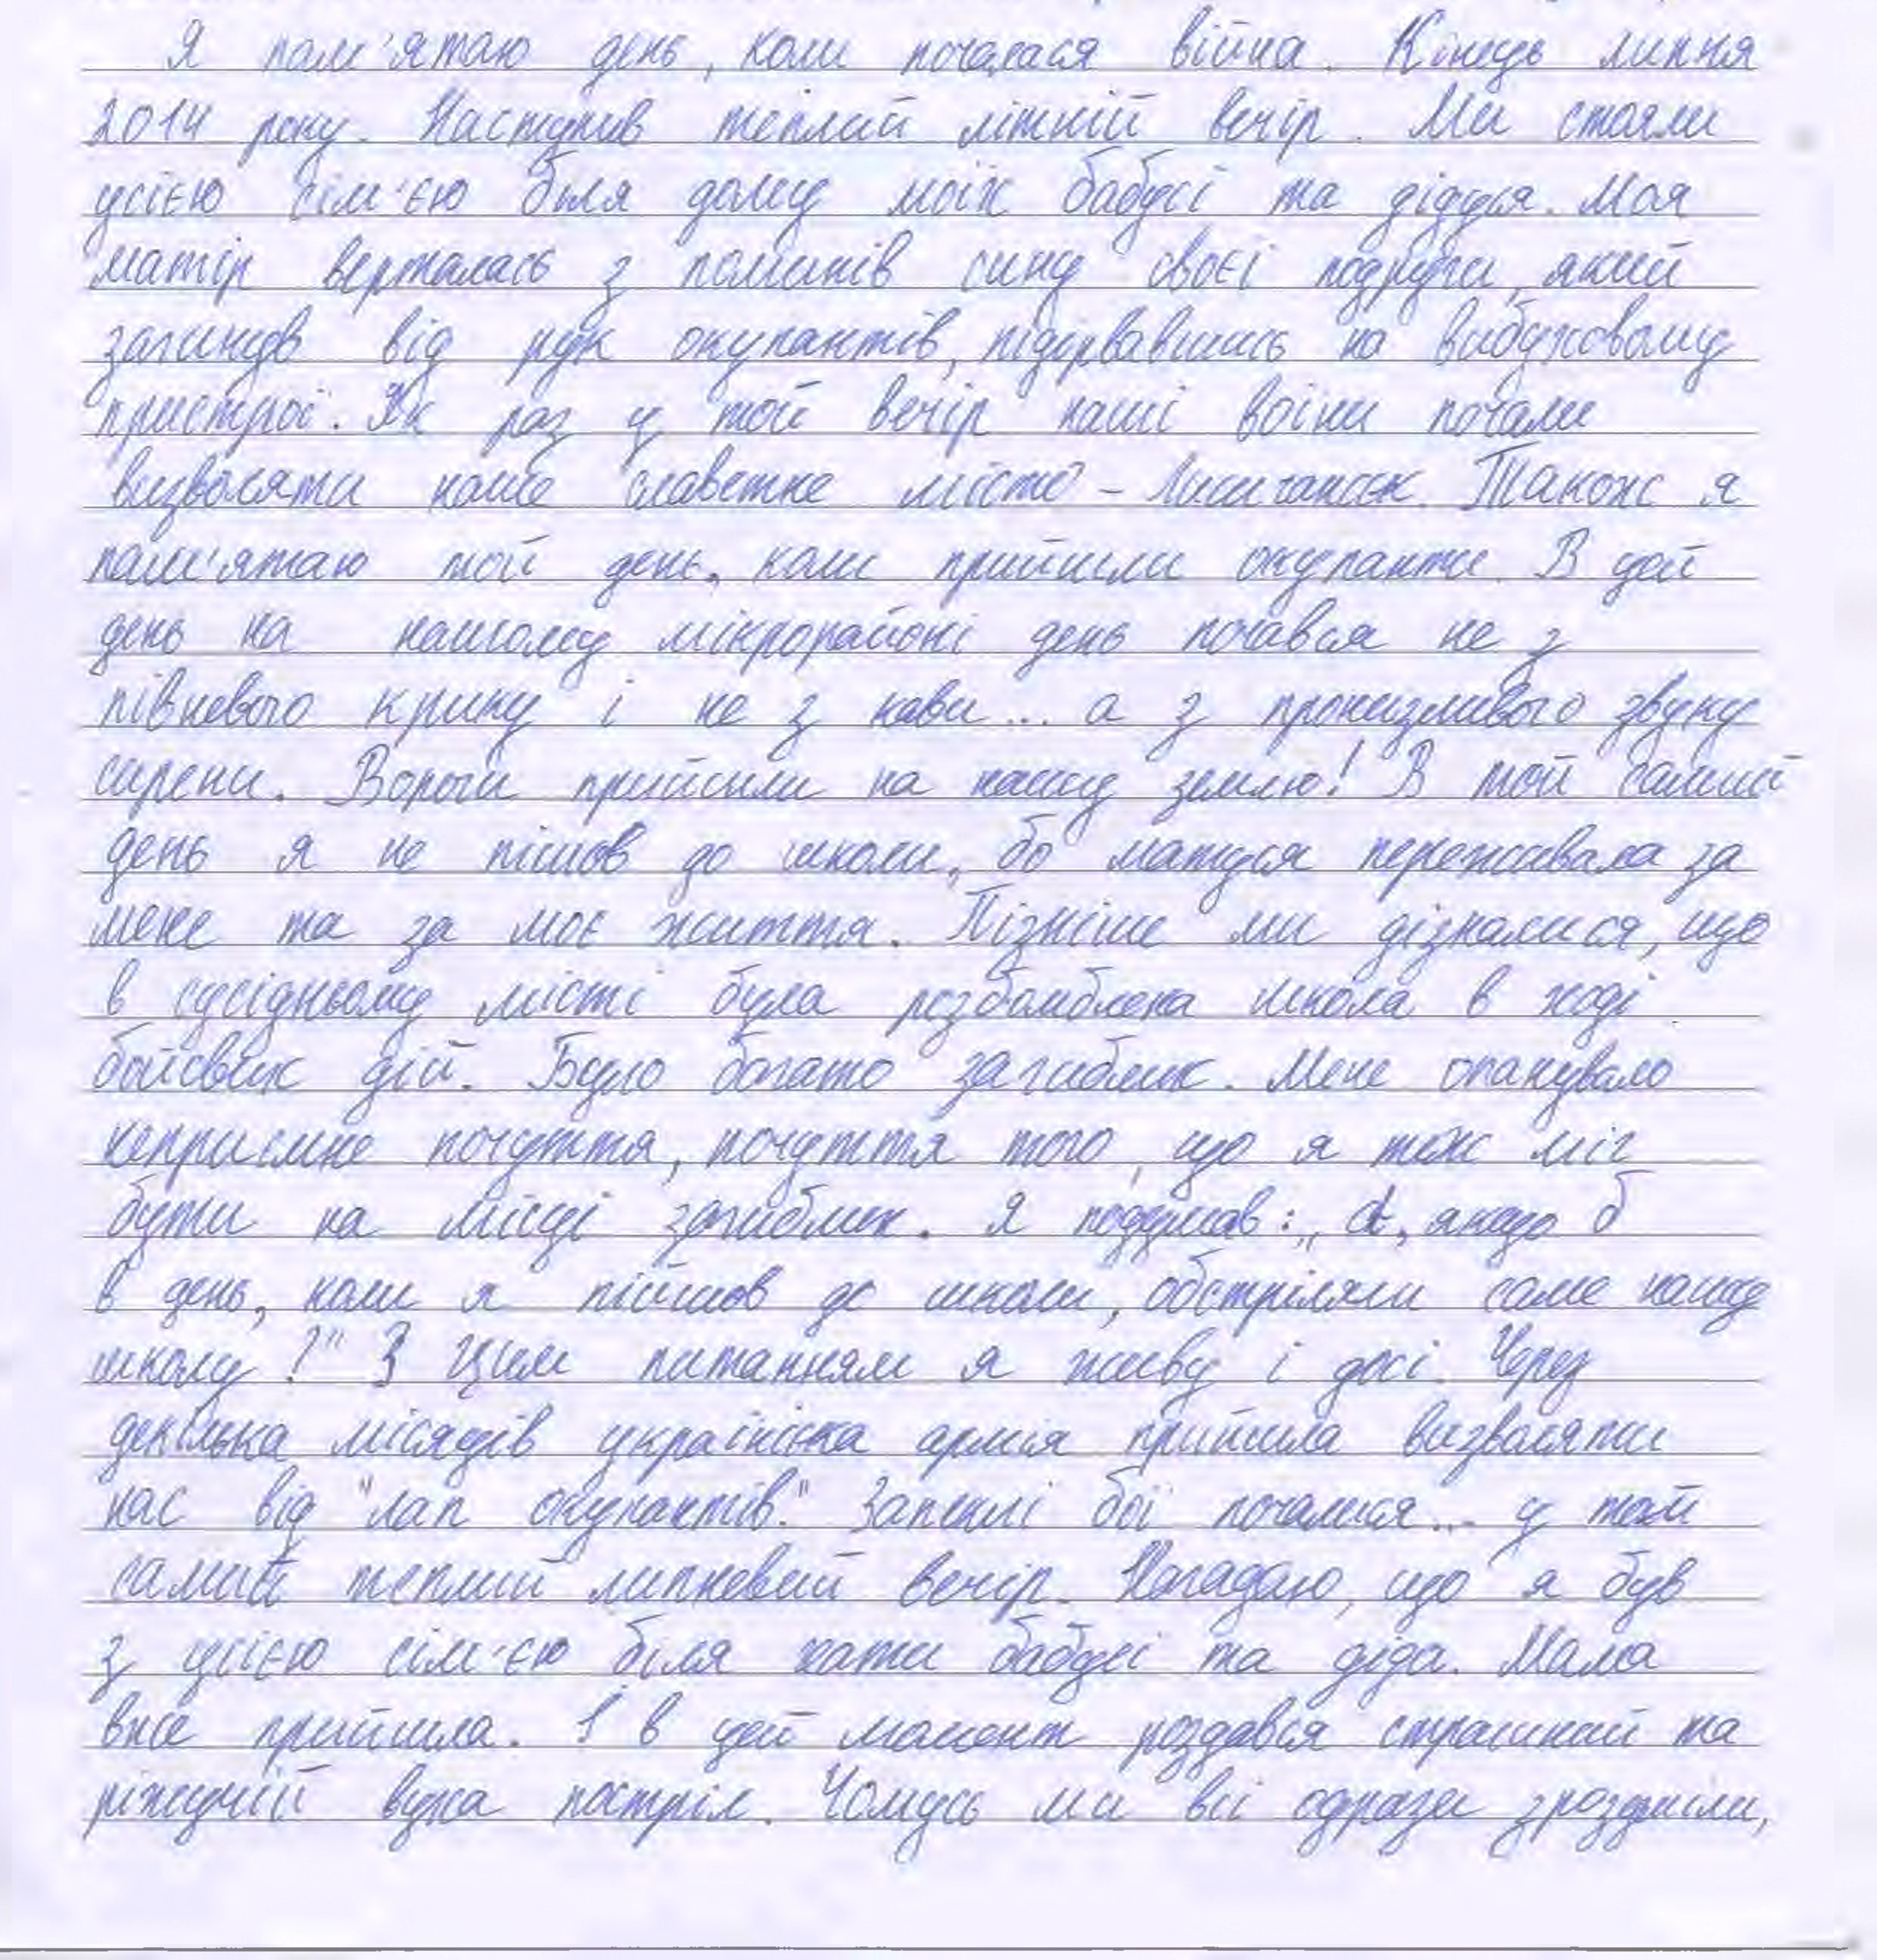 Я пам'ятаю день, коли почалася війна. Кінець липня
2014 року. Наступив теплий літній вечір. Ми стояли
усією сім'єю біля дому моїх бабусі та дідуся. Моя
матір верталась з поминів сину своєї подруги, який
загинув від рук окупантів, підірвавшись на вибуховому
пристрої. Як раз у той вечір наші воїни почали
визволяти наше славетне місто - Лисичанськ. Також я
пам'ятаю той день, коли прийшли окупанти. В цей
день на нашому мікрорайоні день почався не з
півневого крику і не з кави... а з пронизливого звуку
сирени. Вороги прийшли на нашу землю! В той самий
день я не пішов до школи, бо матуся переживала за
мене та за моє життя. Пізніше ми дізналися, що
в сусідньому місті була розбомблена школа в ході
бойових дій. Було богато загиблих. Мене опанувало
неприємне почуття, почуття того, що я теж міг
бути на місці загиблих. Я подумав: „А, якщо б
в день, коли я пійшов до школи, обстріляли саме нашу
школу?" З цим питанням я живу і досі. Через
декілька місяців українська армія прийшла визволяти
нас від "лап окупантів." Запеклі бої почалися... у той
самий теплий липневий вечір. Нагадаю, що я був
з усією сім'єю біля хати бабусі та діда. Мама
вже прийшла. І в цей момент роздався страшний та
ріжучий вуха постріл. Чомусь ми всі одразу зрозуміли,